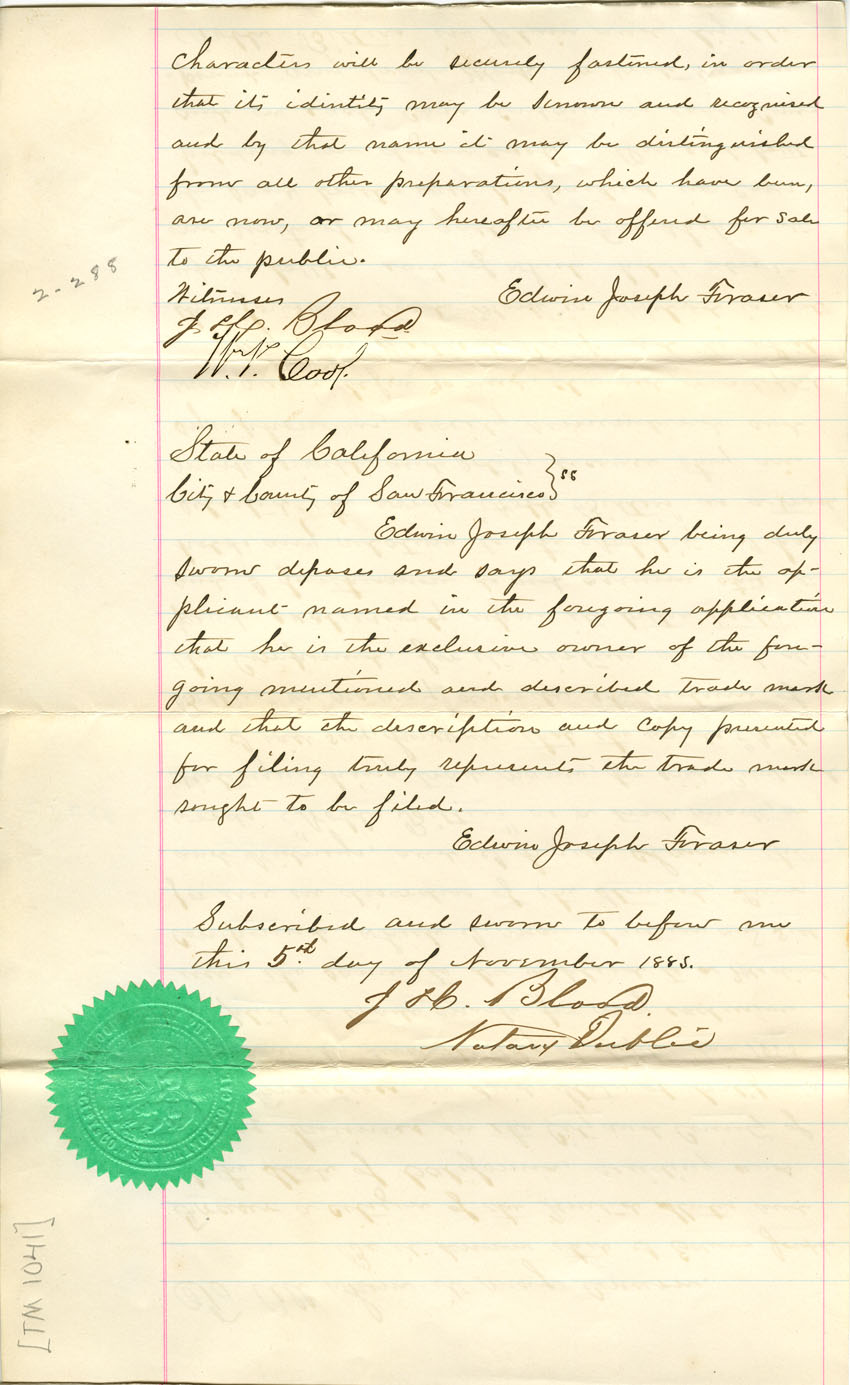 characters will be securely fastened, in order
that its identity may be known and recognised
and by that name it may be distinguished
from all other preparations, which have been,
are now, or may hereafter be offered for sale
to the public.
2-288
Witnesses Edwin Joseph Fraser
J. H. Blood
W. T. Cook
State of California
City & County of San Francisco } ss
Edwin Joseph Fraser being duly
sworn deposes and says that he is the ap-
plicant named in the foregoing application
that he is the exclusive owner of the fore-
going mentioned and described trade mark
and that the description and copy presented
for filing truly represents the trade mark
sought to be filed.
Edwin Joseph Fraser
Subscribed and sworn to before me
this 5th day of November 1885.
J. H. Blood
Notary Public
[TM 1041]